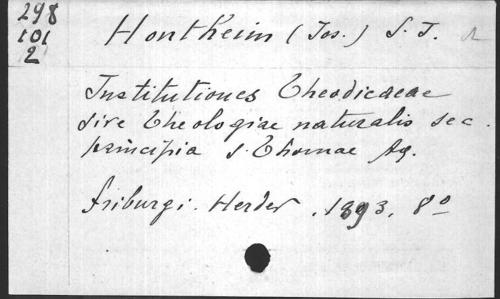 298
101
2
Hontheim (Jos.) S. J.
Institutiones Theodicaeae
sive Theologiae naturalis sec.
principia s. Thomae Aq.
Friburgi. Herder. 1893. 8º